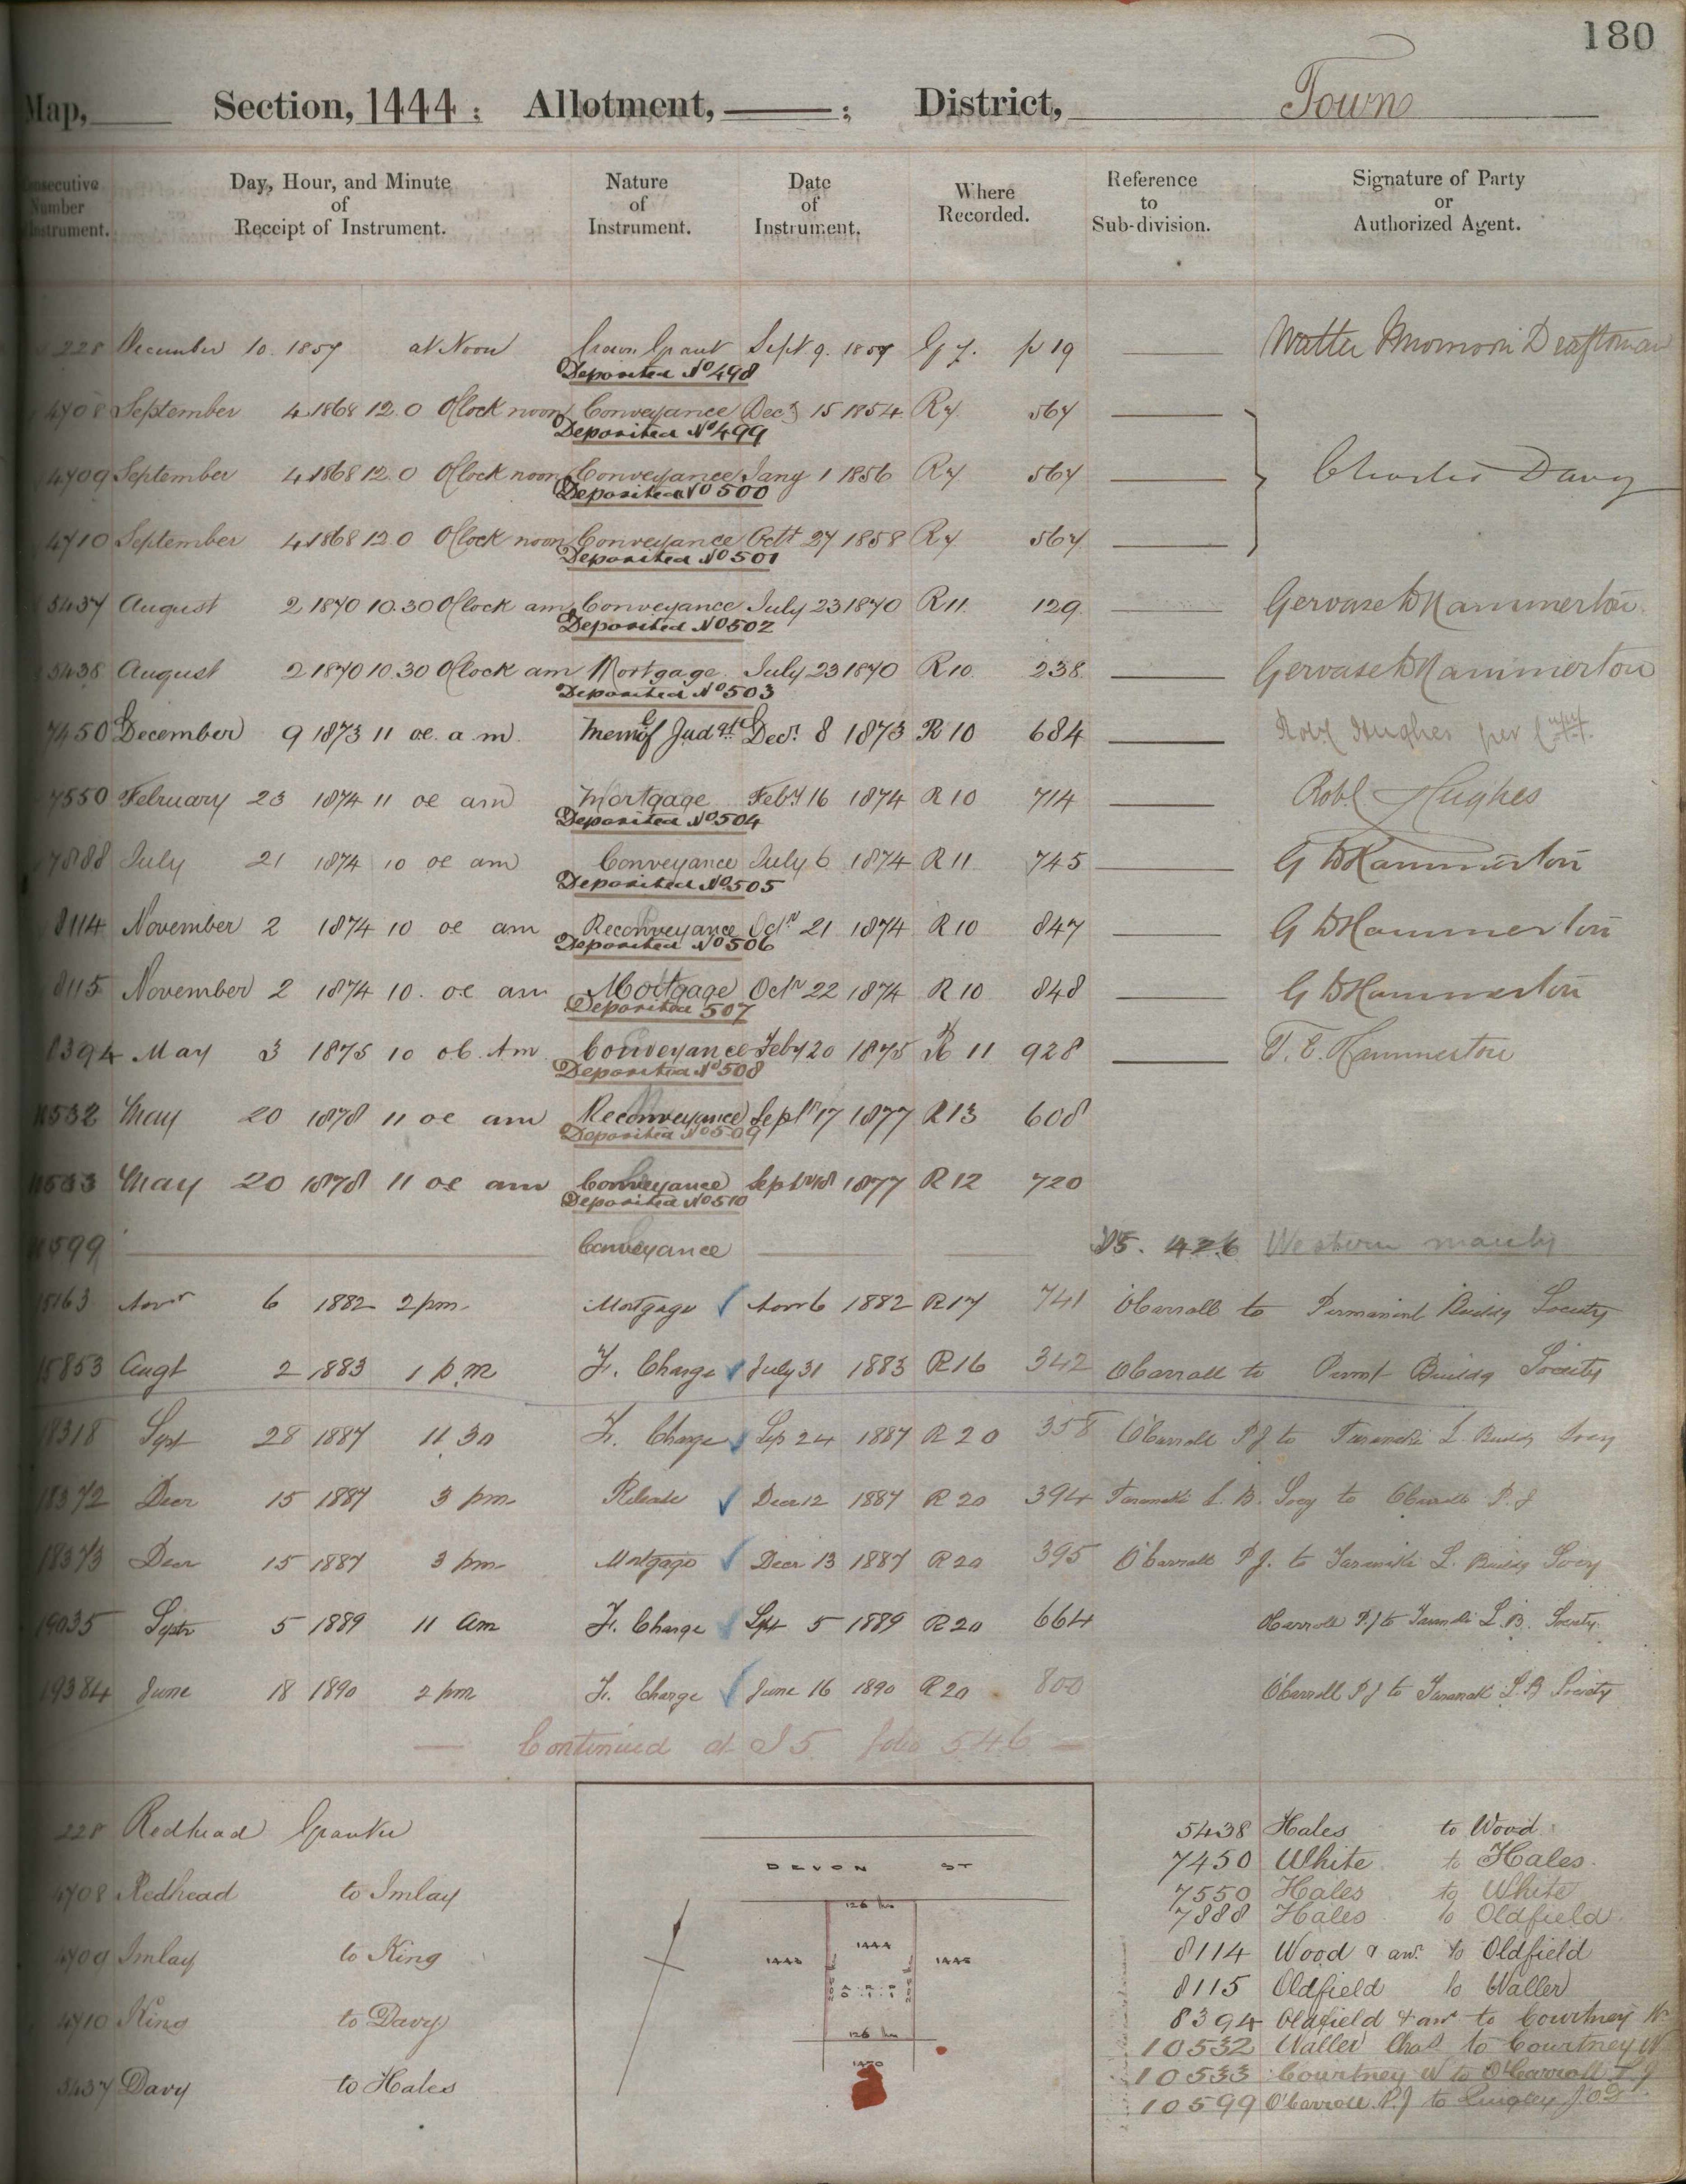 180
Map, Section, 1444 : Allotment, ——— ; District, Town
Consecutive Number Instrument.
Day, Hour, and Minute of Receipt of Instrument.
Nature of Instrument.
Date of Instrument.
Where Recorded.
Reference to Sub-division.
Signature of Party or Authorized Agent.
228 December 10. 1857 at Noon Crown Grant Sept 9. 1857 G 7. p 19 Walter Draftsman
Deposited No 498
4708 September 4 1868 12.0 Oclock noon Conveyance Decr 15 1854 R7 567
Deposited No 499
4709 September 4 1868 12.0 Oclock noon Conveyance Jany 1 1856 R7 567 Charles Davy
Deposited No 500
4710 September 4 1868 12.0 Oclock noon Conveyance Octr 27 1858 R7 567
Deposited No 501
5437 August 2 1870 10.30 Oclock am Conveyance July 23 1870 R11 129 Gervase D Hammerton
Deposited No 502
5438 August 2 1870 10.30 Oclock am Mortgage July 23 1870 R10 238 Gervase D Hammerton
Deposited No 503
7450 December 9 1873 11 oc. a.m. Memo of Judgt Decr 8 1873 R 10 684 Robt Hughes per
7550 February 23 1874 11 oc am Mortgage Feby 16 1874 R 10 714 Robt Hughes
Deposited No 504
7888 July 21 1874 10 oc am Conveyance July 6 1874 R 11 745 G D Hammerton
Deposited No 505
8114 November 2 1874 10 oc am Reconveyance Octr 21 1874 R 10 847 G D Hammerton
Deposited No 506
8115 November 2 1874 10. oc am Mortgage Octr 22 1874 R 10 848 G D Hammerton
Deposited 507
8394 May 3 1875 10 oc. Am Conveyance Feby 20 1875 R 11 928 T. E. Hammerton
Deposited No 508
10532 May 20 1878 11 oc am Reconveyance Septr 17 1877 R13 608
Deposited No 509
10533 May 20 1878 11 oc am Conveyance Septr 18 1877 R 12 720
Deposited No 510
10599 Conveyance D5. 426 Western moiety
15163 Novr 6 1882 2 pm Mortgage Novr 6 1882 R17 741 O'Carroll to Permanent Buildg Society
15853 Augt 2 1883 1 p.m F. Charge July 31 1883 R16 342 OCarroll to Permt Buildg Society
18318 Sept 28 1887 11 30 F. Charge Sep 24 1887 R 20 358 O'Carroll P J to Taranaki L. Buildg Socy
18372 Decr 15 1887 3 pm Release Decr 12 1887 R 20 394 Taranaki L. B. Socy to OCarroll P. J
18373 Decr 15 1887 3 pm Mortgage Decr 13 1887 R 20 395 O'Carroll P J. to Taranaki L. Buildg Socy
19035 Septr 5 1889 11 am F. Charge Sept 5 1889 R 20 664 OCarroll P J to Taranaki L. B. Society
19384 June 18 1890 2 pm F. Charge June 16 1890 R 20 800 O'Carroll P J to Taranaki L. B Society
— Continued at I 5 folio 546 —
228 Redhead Grantee
4708 Redhead to Imlay
4709 Imlay to King
4710 King to Davy
5437 Davy to Hales
DEVON ST
126 lks
1443 1444 1445
A. R. P.
0 : 1 : 1
126 lks
1470
5438 Hales to Wood
7450 White to Hales
7550 Hales to White
7888 Hales to Oldfield
8114 Wood & anr. to Oldfield
8115 Oldfield to Waller
8394 Oldfield & anr to Courtney W.
10532 Waller Chas to Courtney W
10533 Courtney W to O'Carroll P J
10599 O'Carroll P. J to Quigley